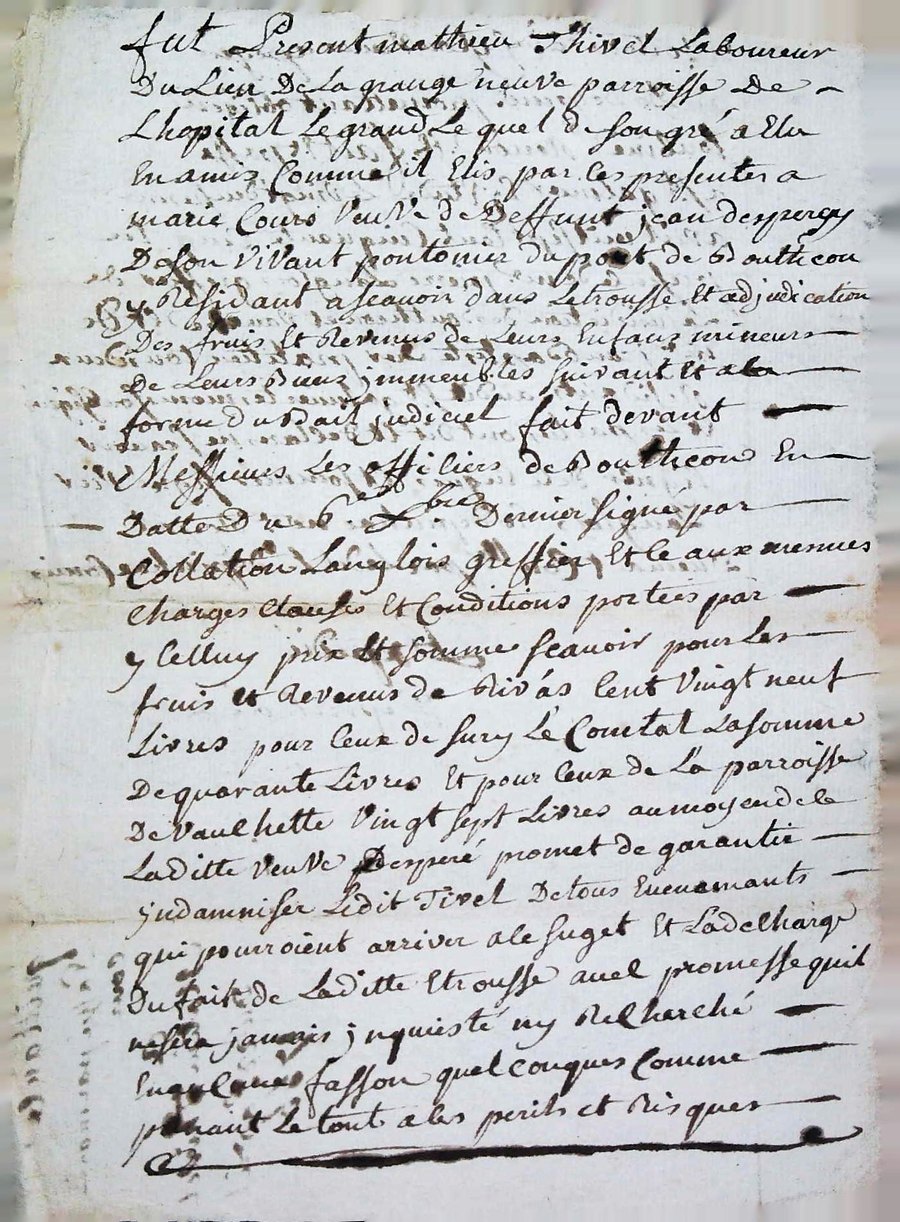 fut Present mathieu Thivel Laboureur
Du Lieu De La grange neuve parroisse De
Lhopital Le grand Le quel de son gré a Elu
En amis Comme il Elis par Ces presentes a
marie Cours Veuve de Deffunt jean despergy
De son Vivant pontonier du pont de Boutheon
y Residant a scavoir dans Letrousse Et adjudication
Des fruis Et Revenus de Leurs Enfans mineurs
De Leurs Biens jmmeubles suivant Et a la
forme du Bail judiciel fait devant
Messieurs Les officiers de Boutheon En
Datte Du 6 xbre Dernier signé par
Collation Langlois greffier Et le aux mesmes
Charges Clauses Et Conditions portées par
y Celluy prix Et somme scavoir pour Les
fruis Et Revenus de Rivas Cent Vingt neuf
Livres pour Ceux de Sury Le Comtal La somme
De quarante Livres Et pour Ceux de La parroisse
De Vauchette Vingt sept Livres au moyen de Ce
La ditte Veuve Desperé promet de garantir
jndamniser Ledit Tivel De tous Evenamants
qui pourroient arriver a Ce suget Et La de Charge
Du fait de La ditte Etrousse avec promesse quil
ne sera jamais jnquiesté ny Recherché
En aucune fasson quel conques Comme
prenant Le tout a Ces perils et Risques